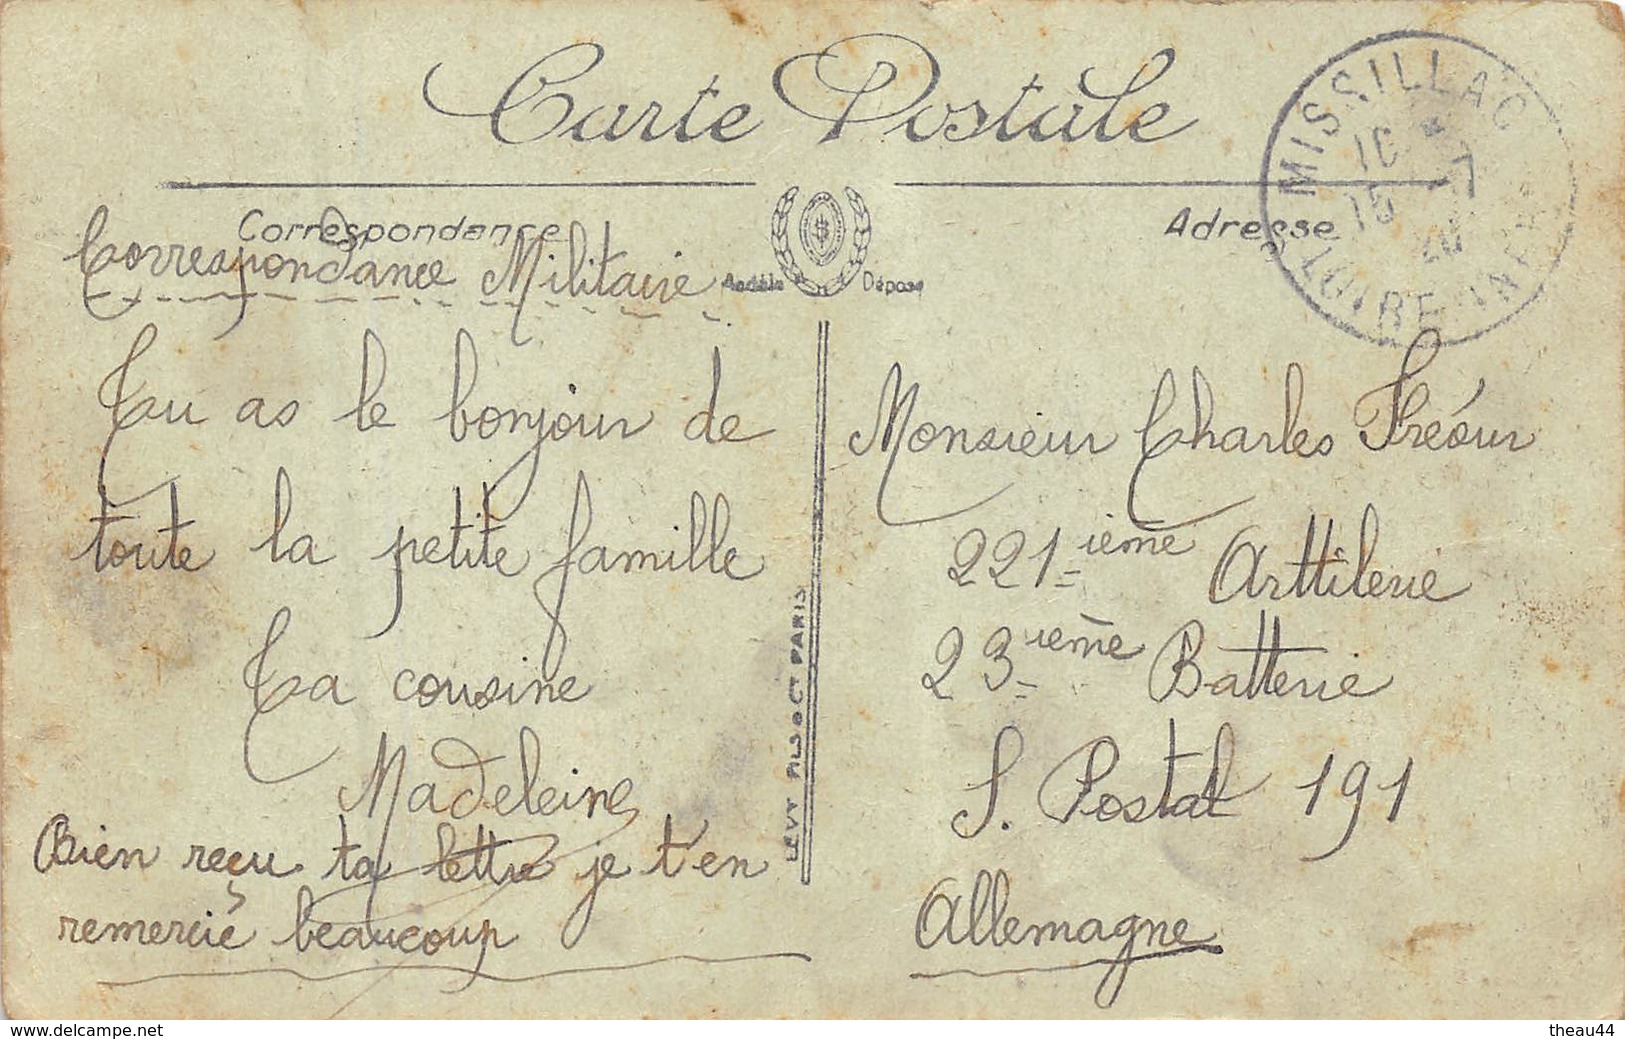 Carte Postale
MISSILLAC
16 *
15 - 7
20
LOIRE-INFRE
Correspondance
Adresse
Correspondance Militaire
Modèle Déposé
Tu as le bonjour de
toute la petite famille
Ta cousine
Madeleine
Bien reçu ta lettre je t'en
remercié beaucoup
LEVY FILS & CT PARIS
Monsieur Charles Fréour
221=ième Arttilerie
23=ième Batterie
S. Postal 191
Allemagne
www.delcampe.net
theau44